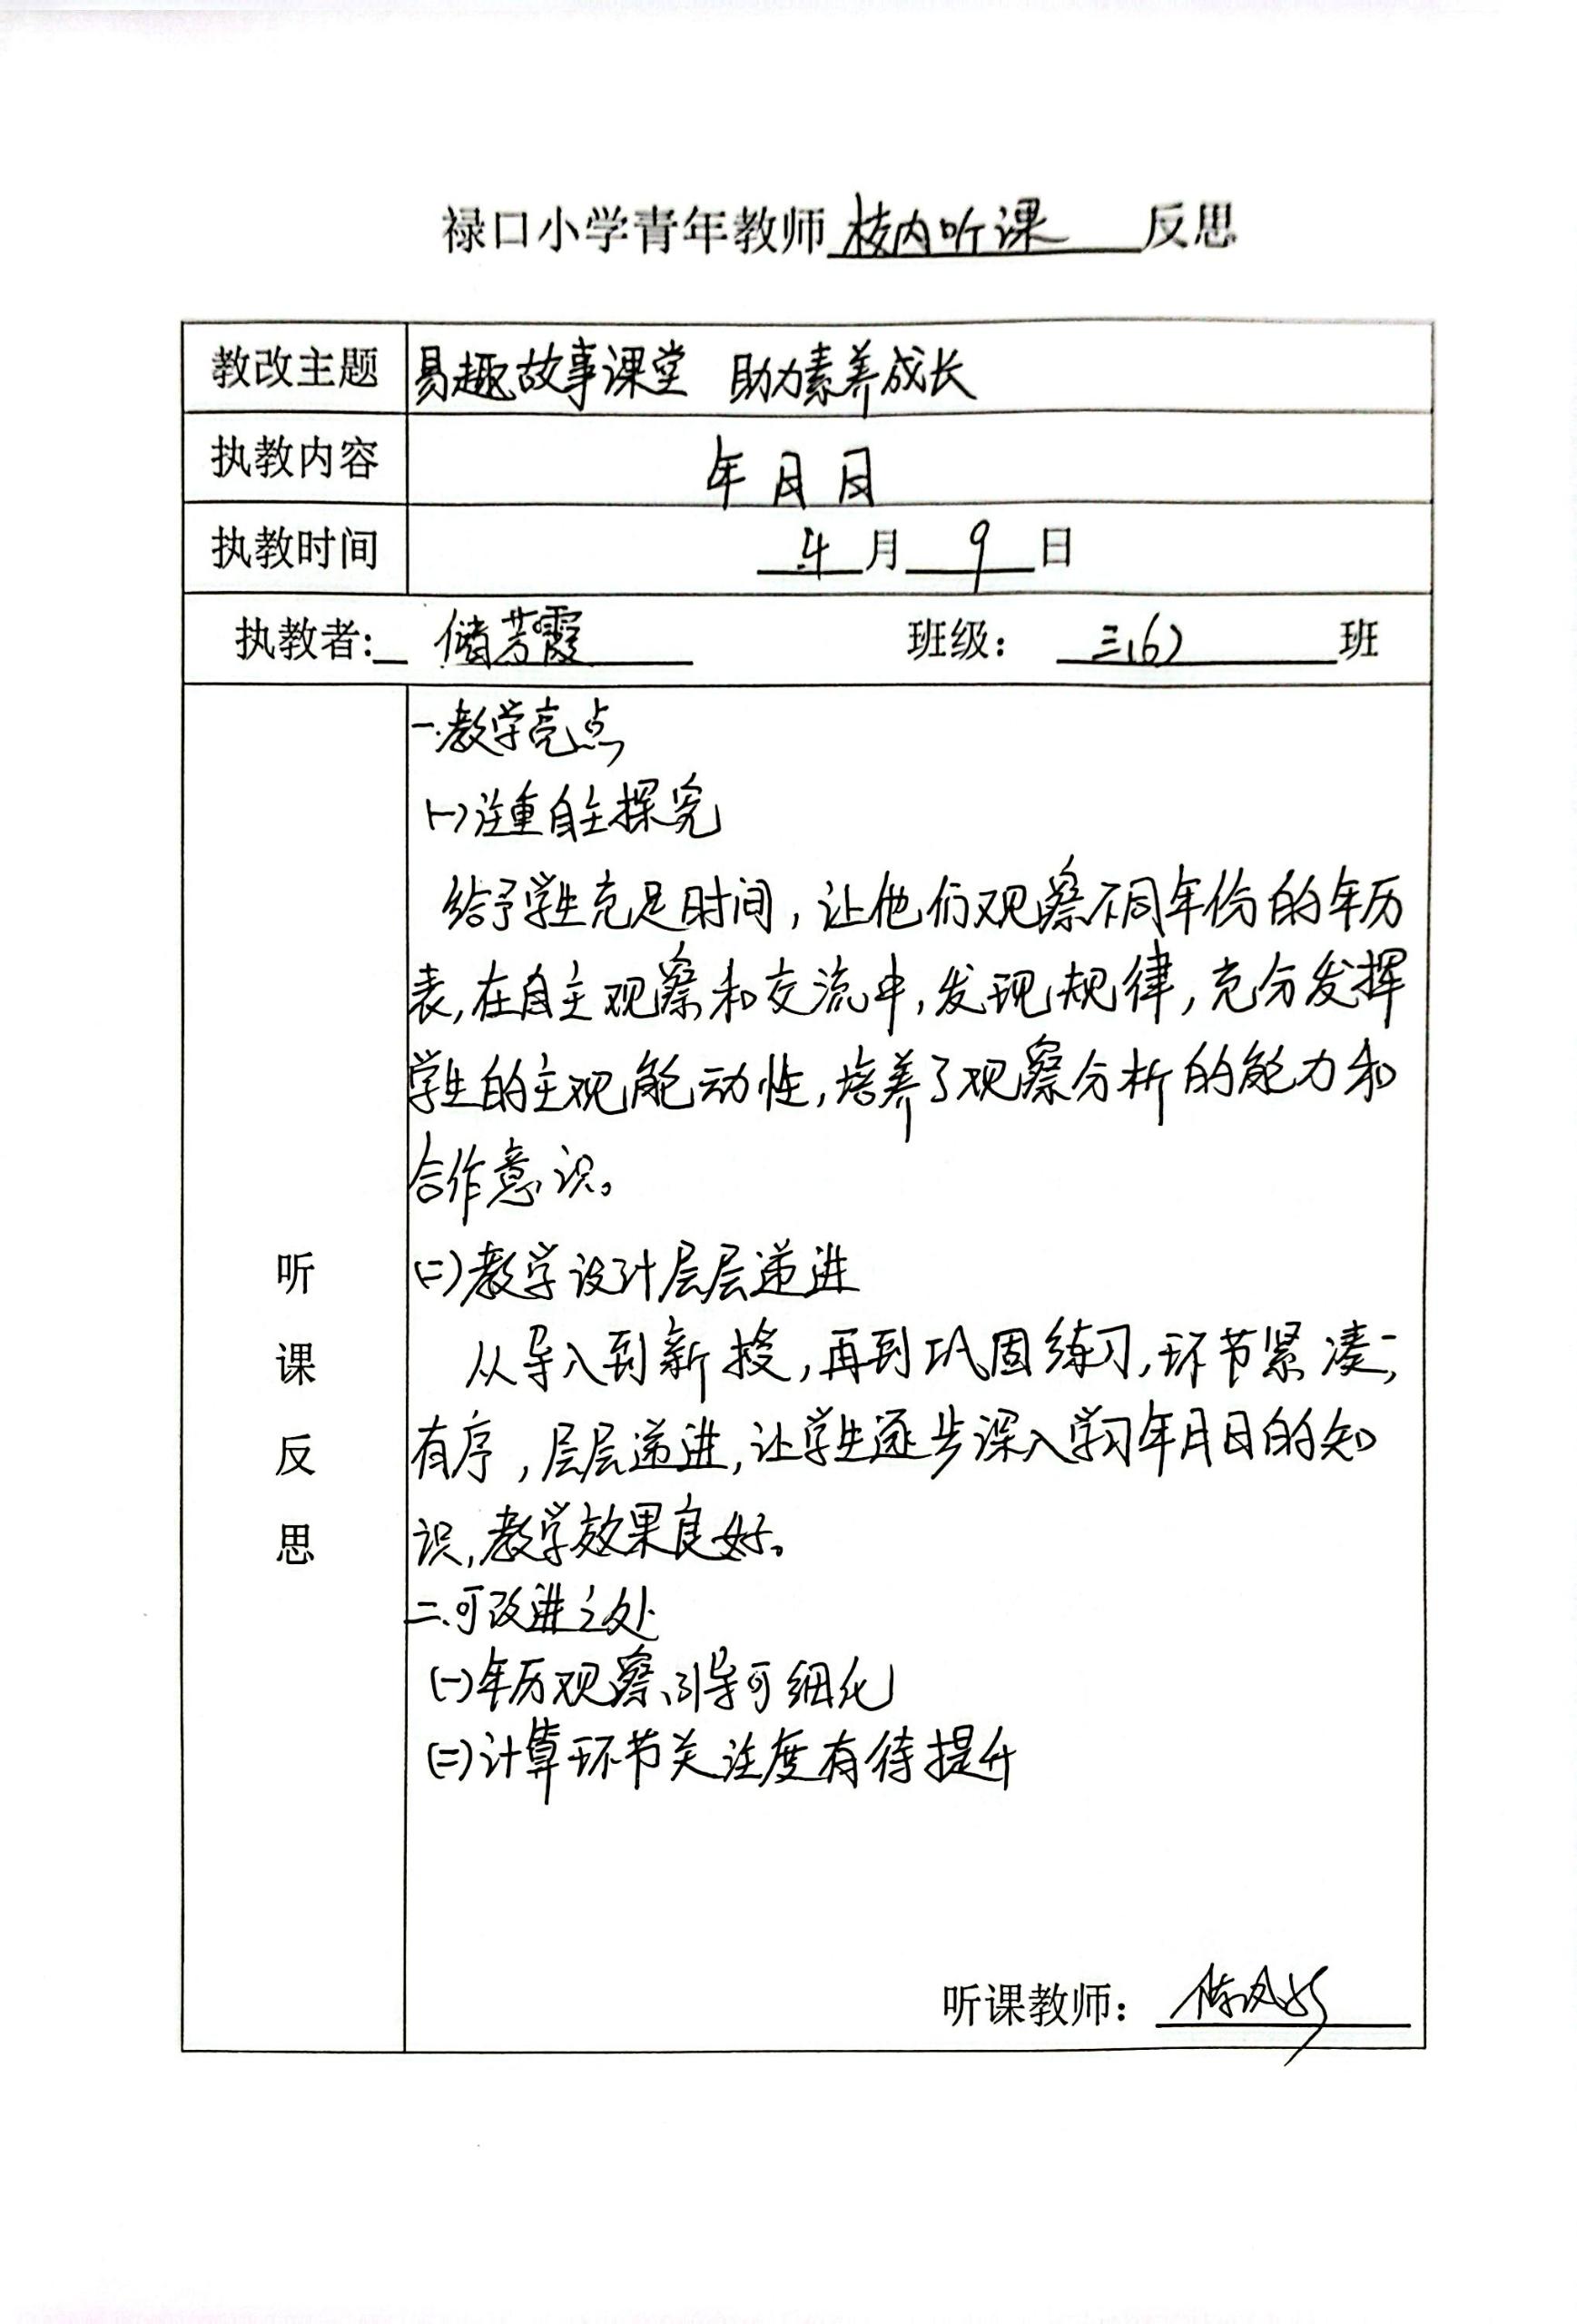 禄口小学青年教师 校内听课 反思
教改主题 易趣故事课堂 助力素养成长
执教内容 年月日
执教时间 4月9日
执教者: 储芳霞 班级: 三(6) 班
一.教学亮点
(一)注重自主探究
给予学生充足时间,让他们观察不同年份的年历
表,在自主观察和交流中,发现规律,充分发挥
学生的主观能动性,培养了观察分析的能力和
合作意识。
(二)教学设计层层递进
从导入到新授,再到巩固练习,环节紧凑
有序,层层递进,让学生逐步深入学习年月日的知
识,教学效果良好。
二.可改进之处
(一)年历观察引导可细化
(二)计算环节关注度有待提升
听课反思
听课教师: